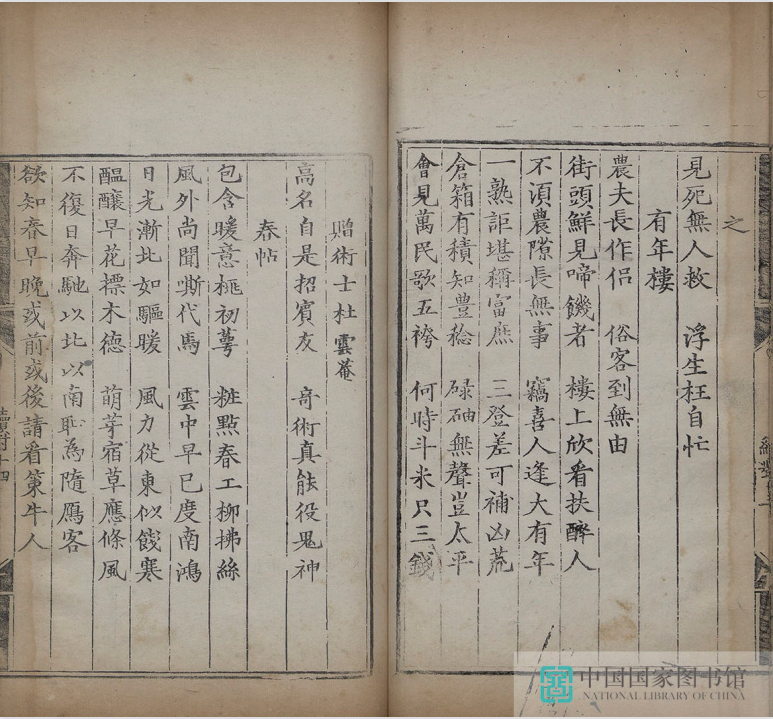 之
見死無人救　浮生枉自忙
有年樓
農夫長作侣　俗客到無由
街頭鮮見啼饑者　樓上欣看扶醉人
不湏農隙長無事　竊喜人逢大有年
一熟詎堪稱富庶　三登差可補凶荒
倉箱有積知豊稔　碌碡無聲豈太平
會見萬民歌五袴　何時斗米只三錢
贈術士杜雲菴
高名自是招賓友　竒術真能役鬼神
春帖
包含暖意桃初萼　粧㸃春工柳拂絲
風外尚聞嘶代馬　雲中早已度南鴻
日光漸北如驅暖　風力從東似餞寒
醖釀早花標木德　萌芽宿草應條風
不復日奔馳以北以南恥為隨鴈客
欲知春早晚或前或後請看策牛人
中国国家图书馆
NATIONAL LIBRARY OF CHINA